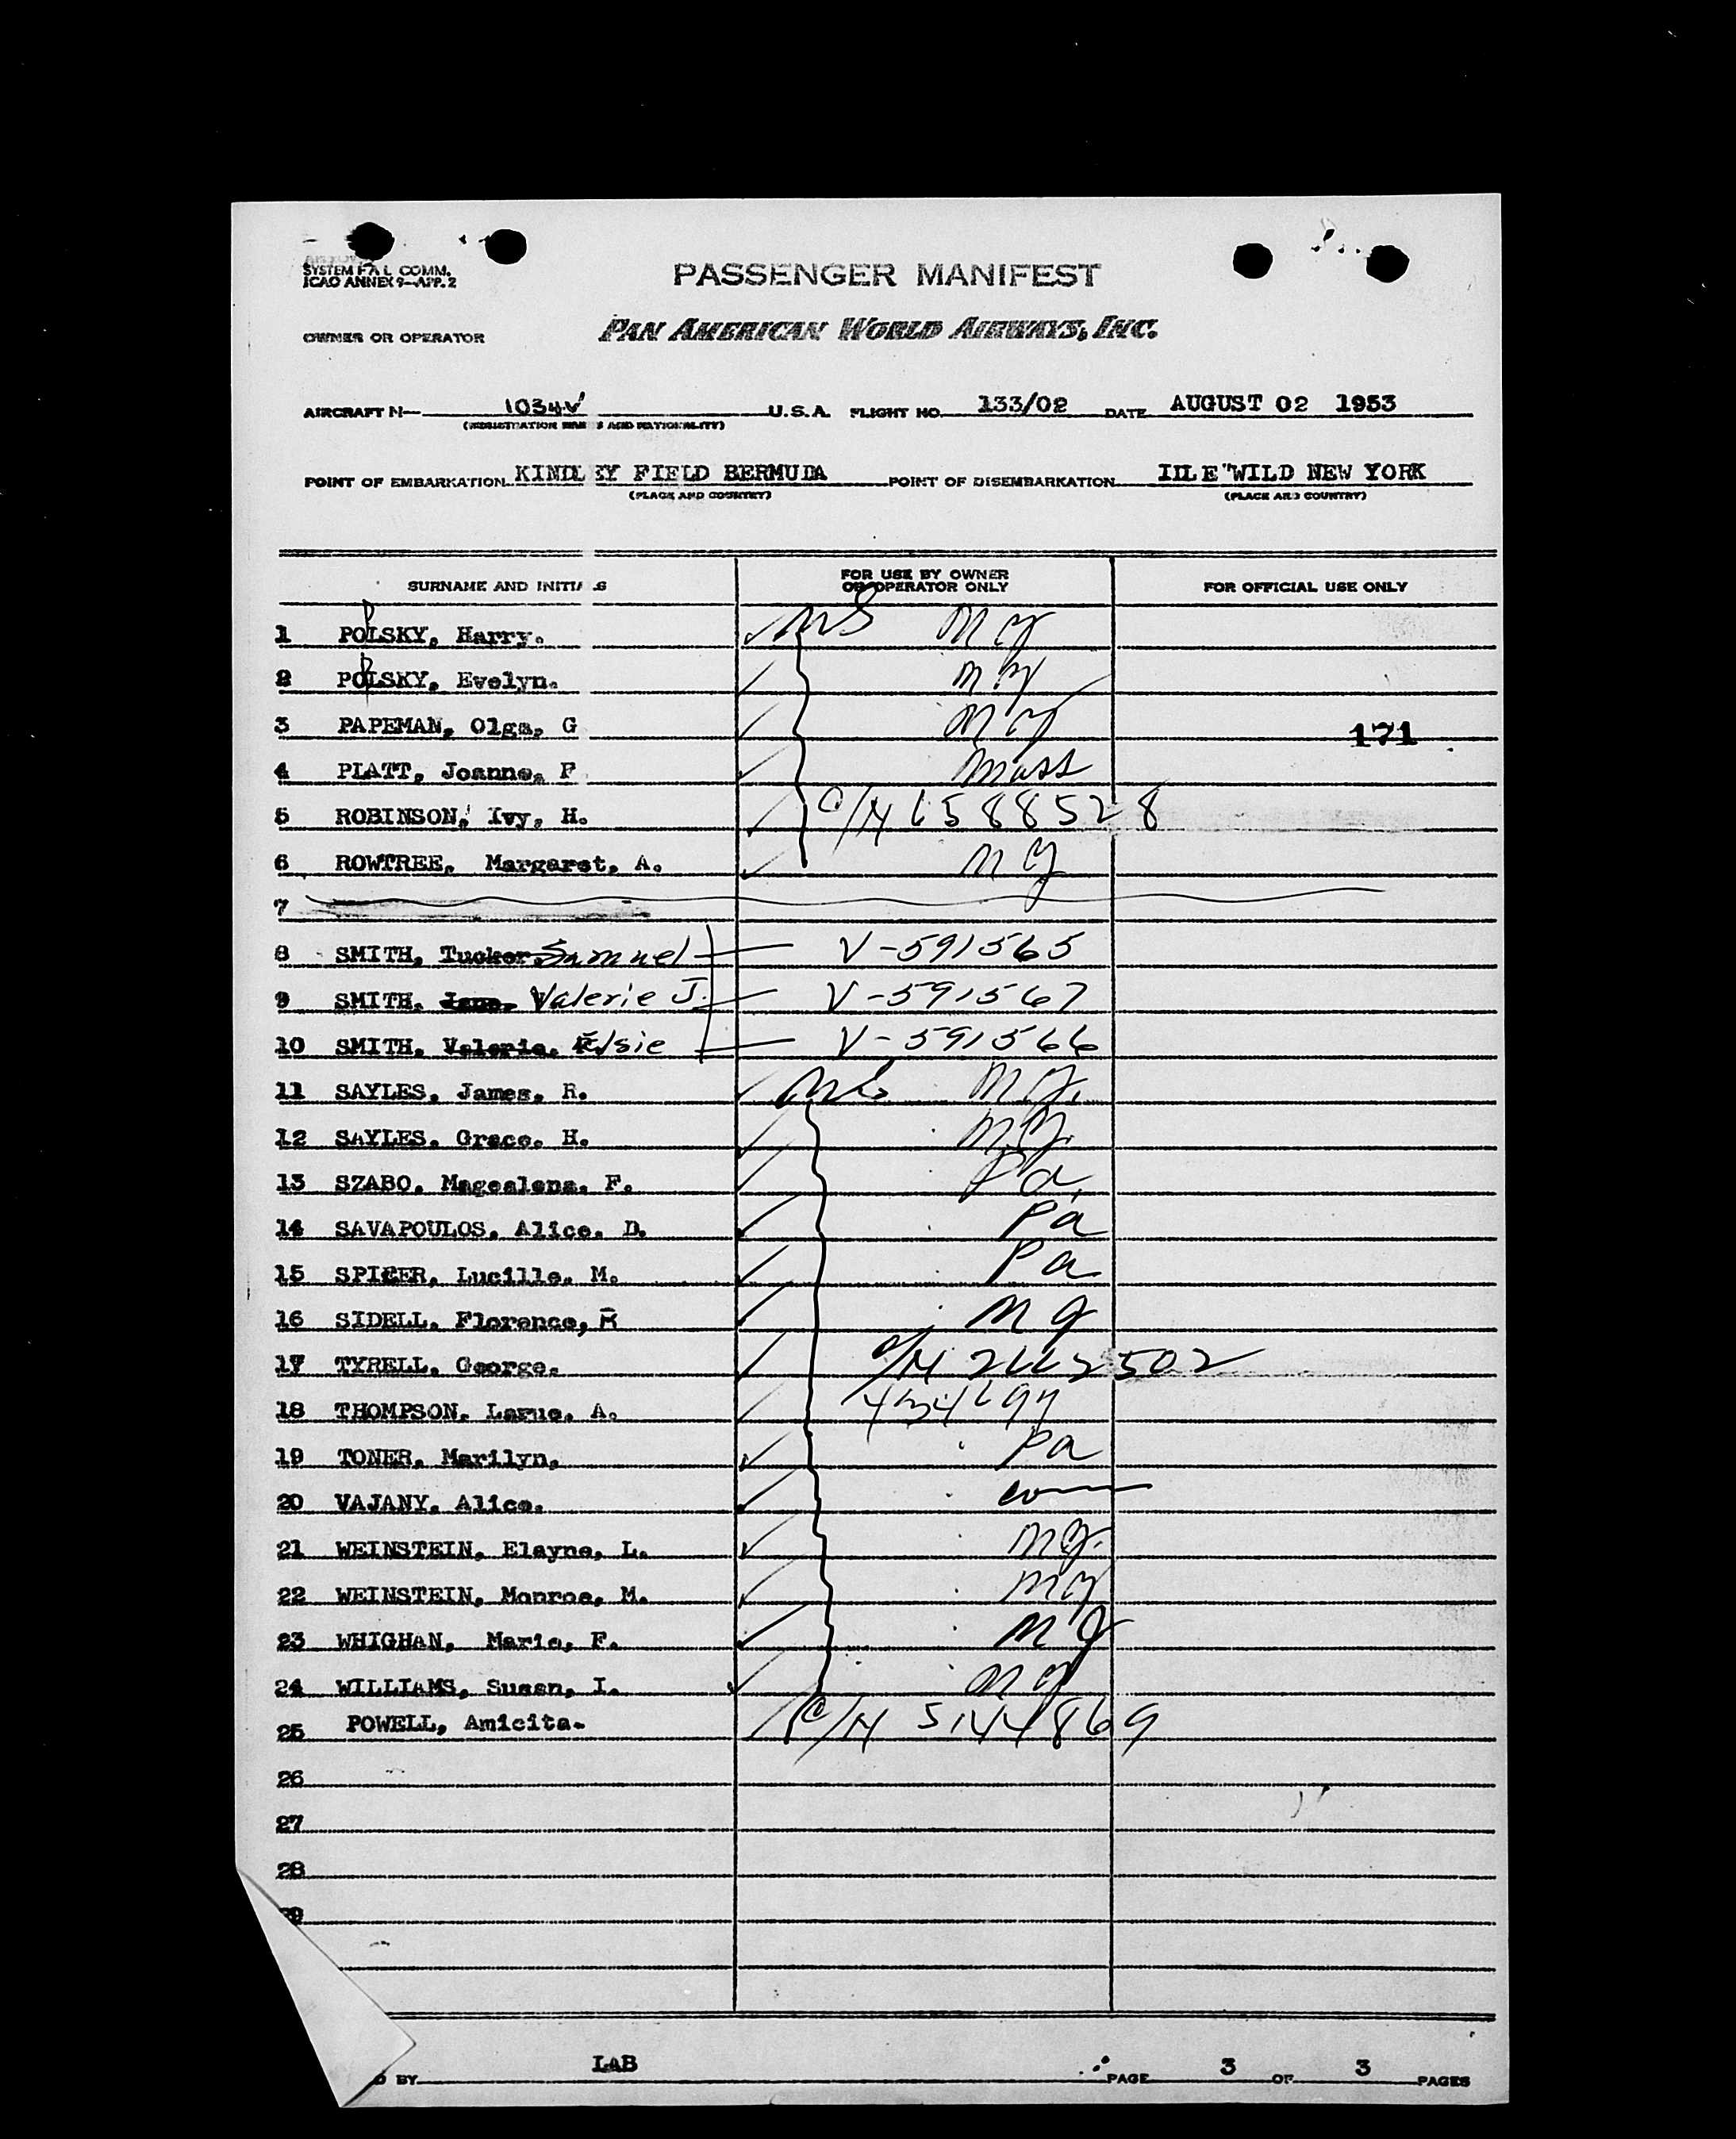 SYSTEM FAL COMM.
ICAO ANNEX 9-APP. 2
PASSENGER MANIFEST
OWNER OR OPERATOR PAN AMERICAN WORLD AIRWAYS, INC.
AIRCRAFT N- 1034V U.S.A. FLIGHT NO. 133/02 DATE AUGUST 02 1953
(REGISTRATION MARKS AND NATIONALITY)
POINT OF EMBARKATION KINDLEY FIELD BERMUDA POINT OF DISEMBARKATION IDLEWILD NEW YORK
(PLACE AND COUNTRY) (PLACE AND COUNTRY)
SURNAME AND INITIALS FOR USE BY OWNER OR OPERATOR ONLY FOR OFFICIAL USE ONLY
1 POLSKY, Harry. NY
2 POLSKY, Evelyn. NY
3 PAPEMAN, Olga, G NY
171
4 PLATT, Joanne, F Mass
5 ROBINSON, Ivy, H. C/N 6588528
6 ROWTREE, Margaret, A. NY
7
8 SMITH, Tucker. Samuel V-591565
9 SMITH. Jane. Valerie J. V-591567
10 SMITH. Valerie. Elsie V-591566
11 SAYLES. James. R. NY.
12 SAYLES. Grace. H. NY.
13 SZABO. Magealena. F. Pa.
14 SAVAPOULOS. Alice. D. Pa
15 SPICER, Lucille. M. Pa
16 SIDELL. Florence, R NY
17 TYRELL. George. C/N 2662502
18 THOMPSON. Larue. A.
19 TONER, Marilyn. Pa
20 VAJANY. Alice.
21 WEINSTEIN, Elayne, L. NY.
22 WEINSTEIN, Monroe, M. NY
23 WHIGHAN, Marie, F. NY
24 WILLIAMS, Susan, I. NY
25 POWELL, Amicita. C/N 5144869
26
27
28
29
D BY LAB PAGE 3 OF 3 PAGES